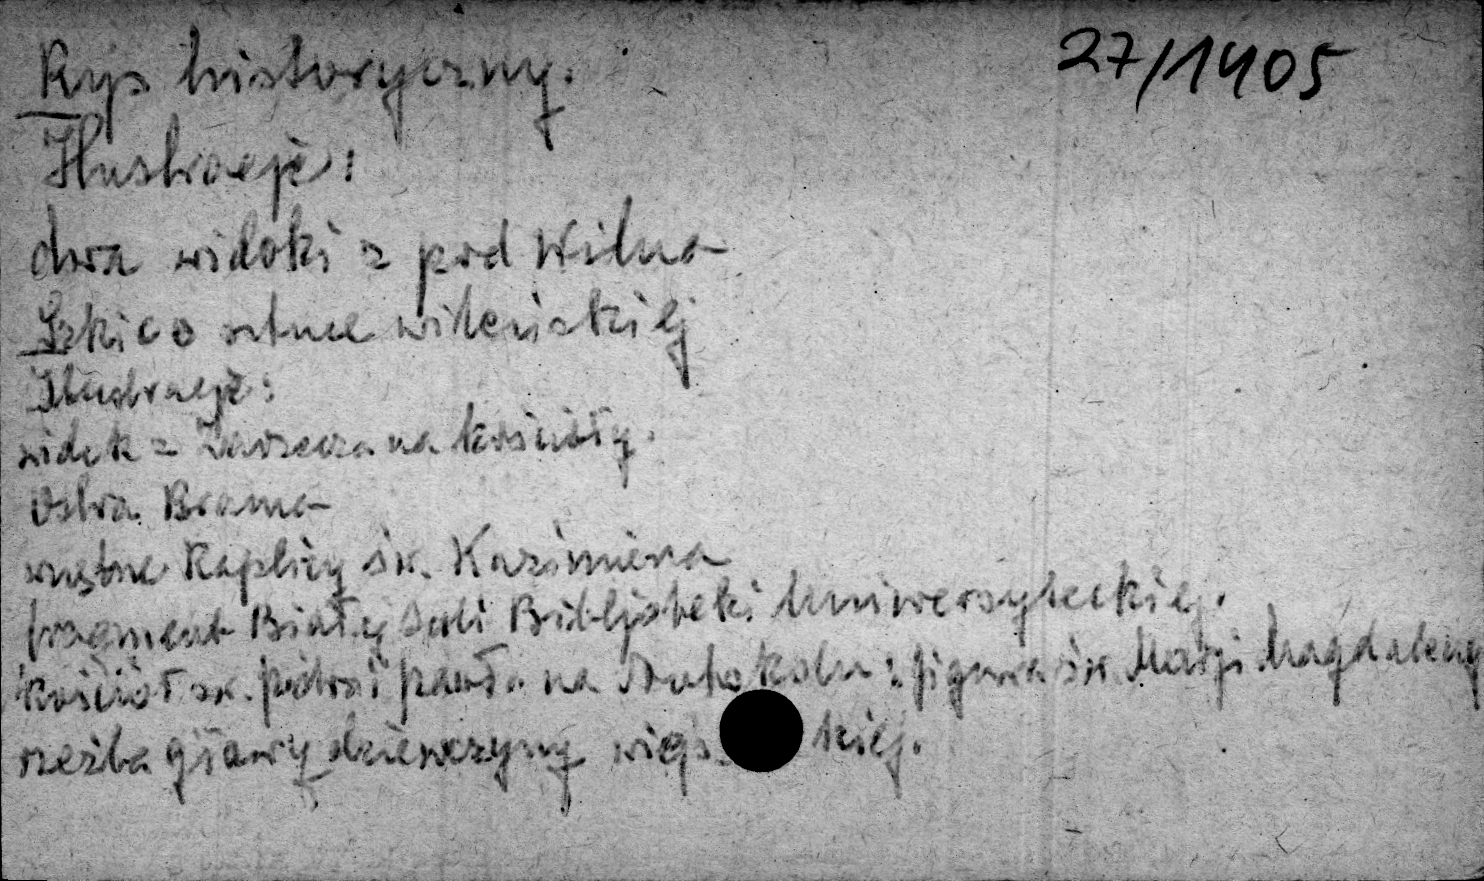 27/1405
Rys historyczny.
Ilustracje:
dwa widoki z pod Wilna
Szkic o sztuce wileńskiej
Ilustracje:
widok z Zarzecza na kościoły.
Ostra Brama
wnętrze Kaplicy św. Kazimierza
fragment Białej Sali Bibljoteki Uniwersyteckiej.
kościół św. piotra i pawła na Antokolu: figura św. Marji Magdaleny
rzeźba głowy dziewczyny kiej.